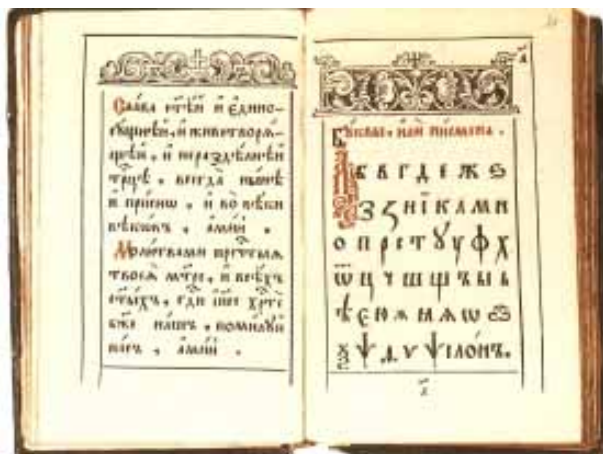 Сла́ва ст҃ѣ́й и҆ є҆дино-
сꙋ́щнѣй, и҆ животворѧ́-
щей, и҆ нераздѣ́лнѣй
трⷪ҇цѣ, всегда̀ ны́нѣ
и҆ при́снѡ, и҆ во вѣ́ки
вѣкѡ́мъ, а҆ми́нь.
Моли́твами пречⷭ҇тыѧ
твоеѧ̀ мт҃ре, и҆ всѣ́хъ
ст҃ы́хъ, гдⷭ҇и і҆и҃се хрⷭ҇тѐ
бж҃е на́шъ, поми́лꙋй
на́съ, а҆ми́нь.
Бꙋ́квы, и҆лѝ пи́смена.
А б в г д е ж ѕ
З ꙁ и ї к л м н
о п р с т ѹ ꙋ ф х
ѿ ц ч ш щ ъ ы ь
ѣ є ю ѫ ѧ ꙗ ѡ ѽ
ѯ ѱ ѳ ѵ ѱілонъ.